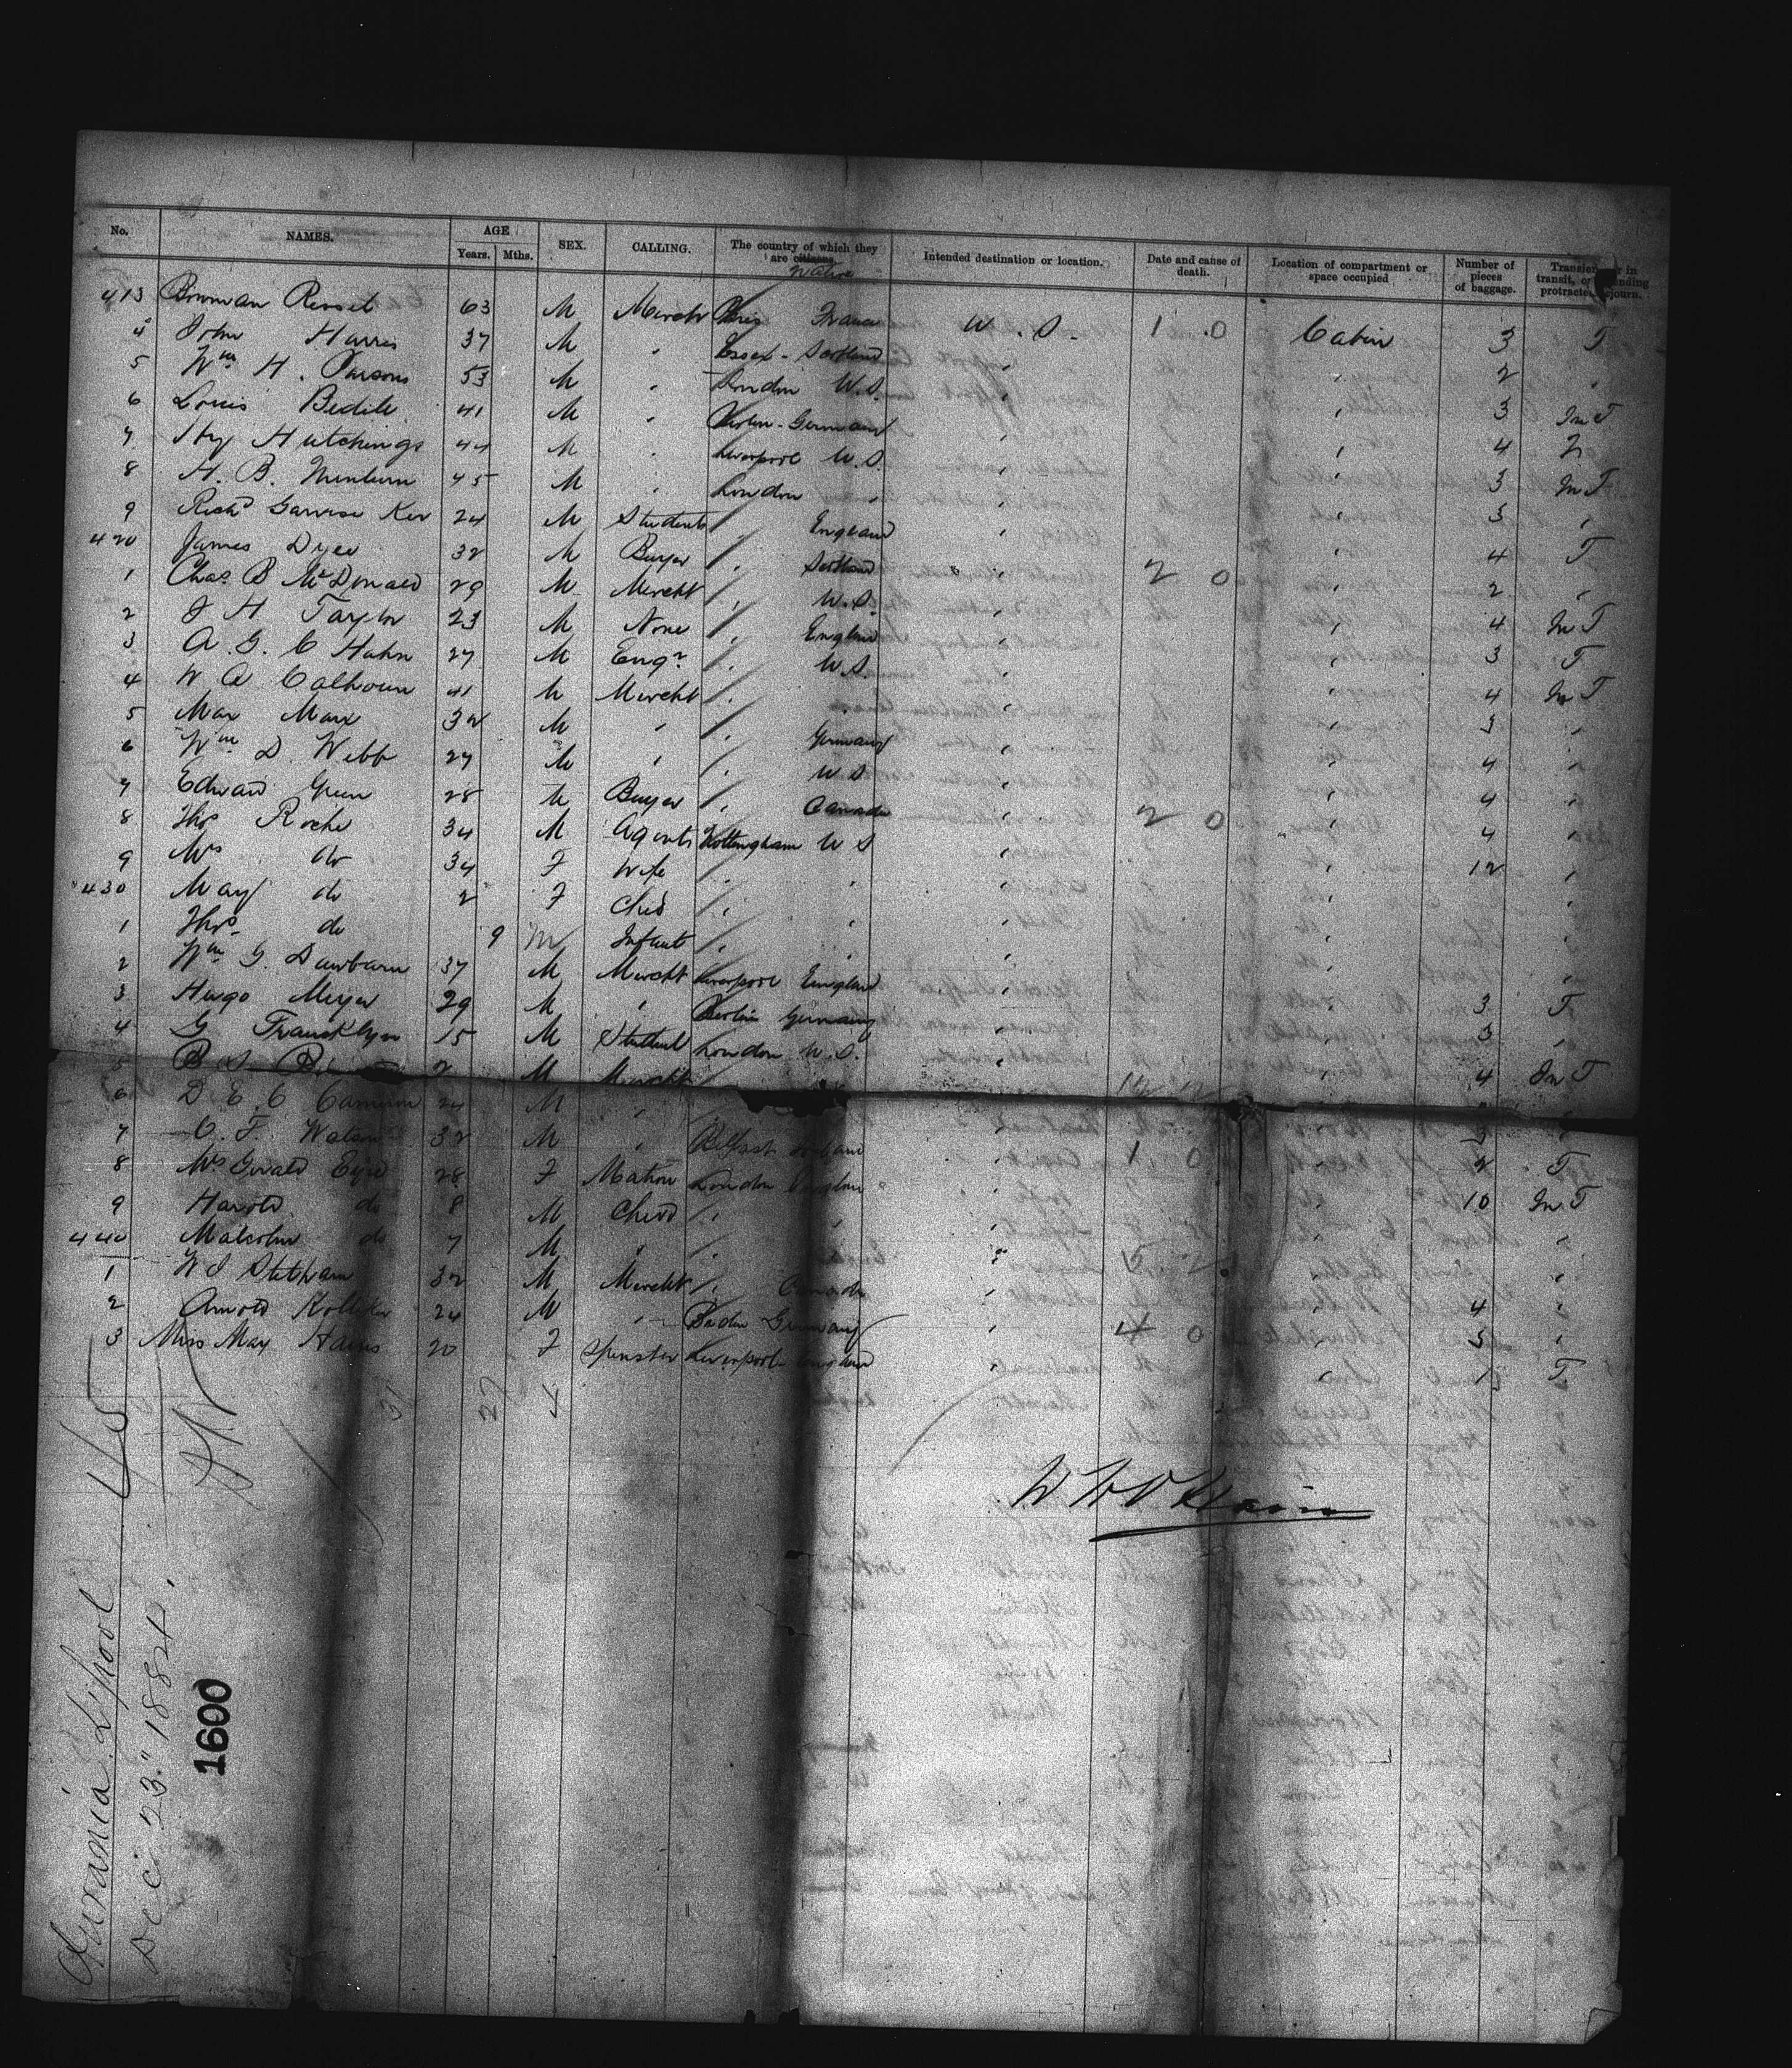 No. NAMES. AGE Years. Mths. SEX. CALLING. The country of which they are citizens. Native Intended destination or location. Date and cause of death. Location of compartment or space occupied Number of pieces of baggage. Transient or in transit, or intending protracted sojourn.
413 63 M Mercht Paris France U.S. 1 0 Cabin 3 T
4 John Harris 37 M " Essex - Scotland " " 2 "
5 Wm H. Parsons 53 M " London U.S. " " 3 In T
6 Louis 41 M " Berlin - Germany " " 4
7 Hy Hutchings 44 M " Liverpool U.S. " " 3 In T
8 H. B. 45 M " London " " " 3 "
9 Richd Ker 24 M Student " England " " 4 T
420 James Dyer 32 M Buyer " Scotland " 2 0 " 2 "
1 Chas B McDonald 29 M Mercht " U.S. " " 4 In T
2 J H Taylor 23 M None " England " " 3 T
3 A. G. C Hahn 27 M Engr " U.S. " " 4 In T
4 W A Calhoun 41 M Mercht " " " " 3 "
5 Max Marx 32 M " " Germany " " 4 "
6 Wm D. Webb 27 M " " U S " " 4 "
7 Edward Green 28 M Buyer " Canada " 2 0 " 4 "
8 Thos Roche 34 M Agent Nottingham U S " " 12 "
9 Mrs do 34 F Wife " " " " "
430 Mary do 2 F Child " " " " "
1 Thos do 9 M Infant " " " " "
2 Wm G. Dawbarn 37 M Mercht Liverpool England " " 3 T
3 Hugo Meyer 29 M " Berlin Germany " " 3 "
4 G Francklyn 15 M Student London U.S. " " 4 In T
5 B M Mercht
6 D E C 24 M "
7 C. F. Watson 32 M " Belfast Ireland " 1 0 " 2 T
8 Mrs Gerald Eyre 28 F Matron London England " " 10 In T
9 Harold do 8 M Child " " " " "
440 Malcolm do 7 M " " " " "
1 W J Statham 32 M Mercht " Canada " " 4 "
2 Arnold Kolliker 24 M " Baden Germany " 4 0 " 5 "
3 Miss May Harris 20 F Spinster Liverpool England " " 1 T.
31 27 4
W H P Hains
Aurania. L'pool
Dec: 23" 1884
1600